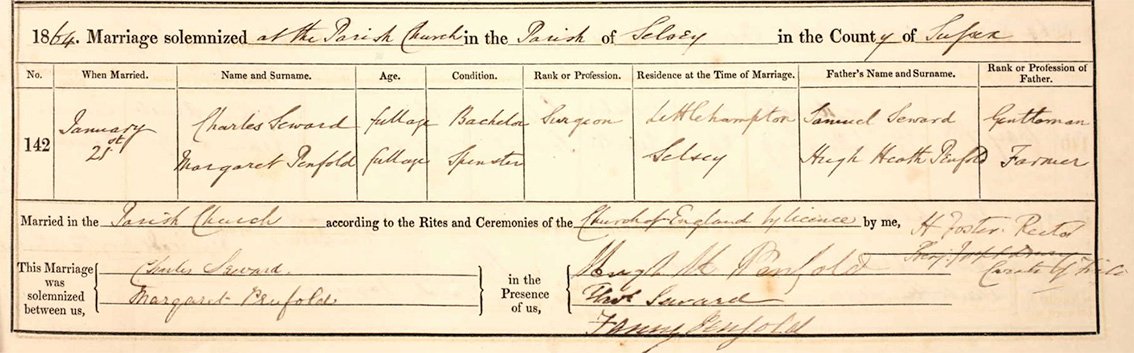 1864. Marriage solemnized at the Parish Church in the Parish of Selsey in the County of Sussex
No. When Married. Name and Surname. Age. Condition. Rank or Profession. Residence at the Time of Marriage. Father's Name and Surname. Rank or Profession of Father.
142 January 21st
Charles Seward full age Bachelor Surgeon Littlehampton Samuel Seward Gentleman
Margaret Penfold full age Spinster Selsey Hugh Heath Penfold Farmer
Married in the Parish Church according to the Rites and Ceremonies of the Church of England by licence by me, H Foster Rector
Curate of
This Marriage was solemnized between us, Charles Seward. in the Presence of us, Hugh H Penfold
Margaret Penfold Thos Seward
Fanny Penfold